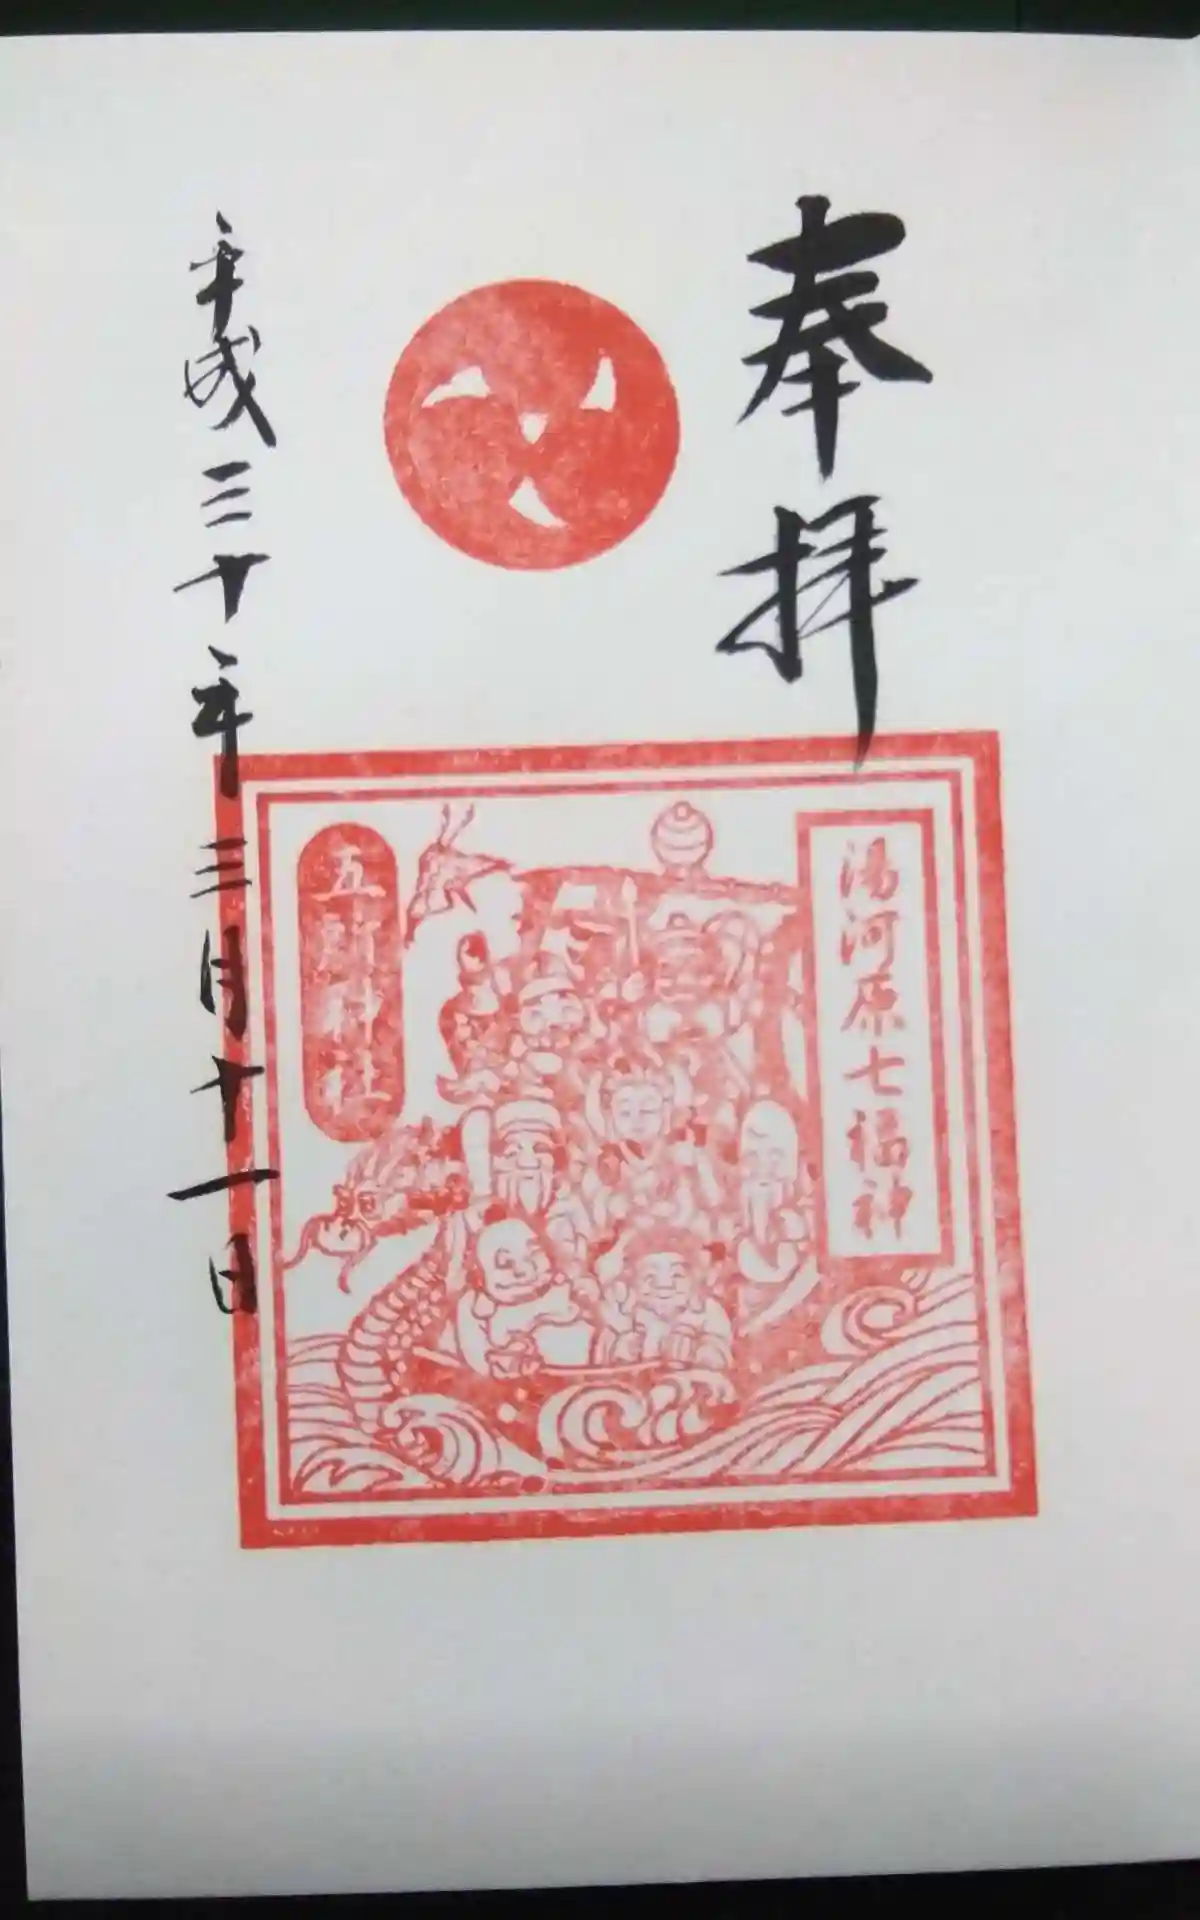 奉拝
湯河原七福神
五所神社
平成三十年三月十一日